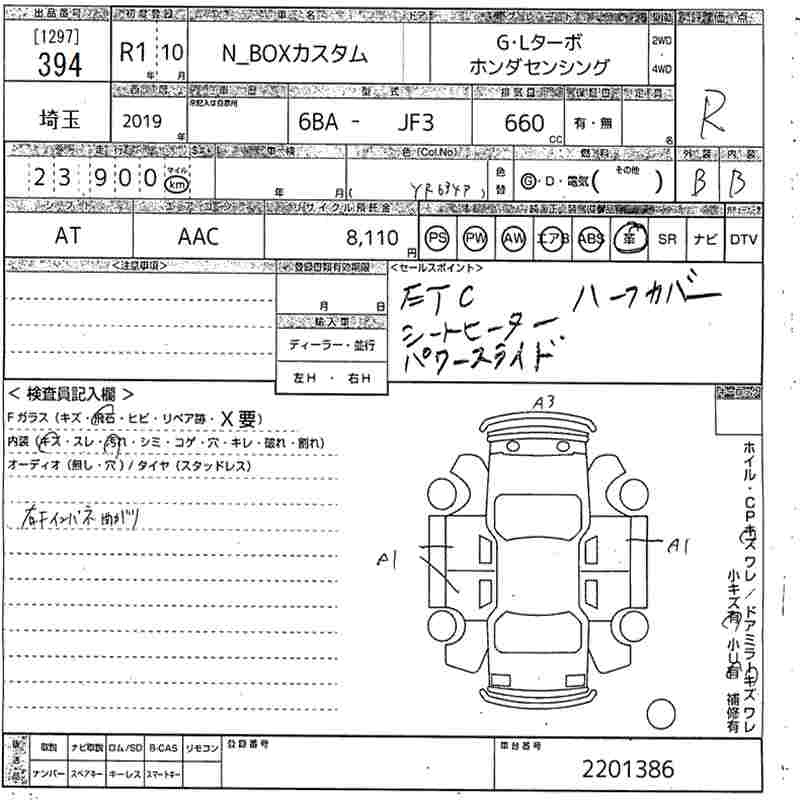 出品番号 初度登録 車名 ドア
[1297]
394
R1 年 10 月
N_BOXカスタム
G・Lターボ
ホンダセンシング
2WD
・
4WD
評価点
R
埼玉
2019 年
車歴
型式
6BA - JF3
排気量
660 cc
有・無
名
走行
23,900
マイル
km
車検
年 月
色(Col.No)
( YR634P )
色替
燃料
G・D・電気( その他 )
外装 内装
B B
シフト エアコン リサイクル預託金
AT AAC 8,110 円
PS PW AW エアB ABS 革 SR ナビ DTV
<注意事項>
登録書類有効期限
月 日
輸入車
ディーラー・並行
左H ・ 右H
<セールスポイント>
ETC ハーフカバー
シートヒーター
パワースライド
< 検査員記入欄 >
Fガラス(キズ・飛石・ヒビ・リペア跡・X要)
内装(キズ・スレ・汚れ・シミ・コゲ・穴・キレ・破れ・割れ)
オーディオ(無し・穴)/タイヤ(スタッドレス)
右Fインパネ曲がり
A3
A1
A1
ホイル・CPキズ ワレ/ドアミラーキズ ワレ
小キズ有 小U有 補修有
取説 ナビ取説 ロム/SD B-CAS リモコン
ナンバー スペアキー キーレス スマートキー
登録番号
車台番号
2201386